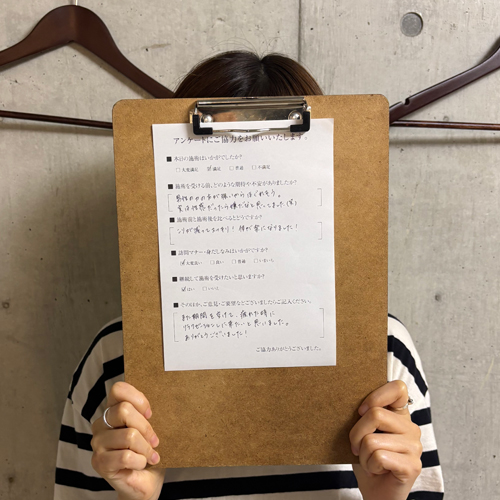 アンケートにご協力をお願いいたします。
■ 本日の施術はいかがでしたか?
□大変満足 ☑満足 □普通 □不満足
■ 施術を受ける前、どのような期待や不安がありましたか?
男性の方の方が強いからほぐれそう。
実は性感だったら嫌だなと思ってました(笑)
■ 施術前と施術後を比べるとどうですか?
コリが減ってスッキリ! 体が楽になりました!
■ 訪問マナー・身だしなみはいかがですか?
☑大変良い □良い □普通 □いまいち
■ 継続して施術を受けたいと思いますか?
☑はい □いいえ
■ そのほか、ご意見・ご要望などございましたらご記入ください。
また期間を空けて、疲れた時に
リラクゼーションしに来たいと思いました。
ありがとうございました!
ご協力ありがとうございました。